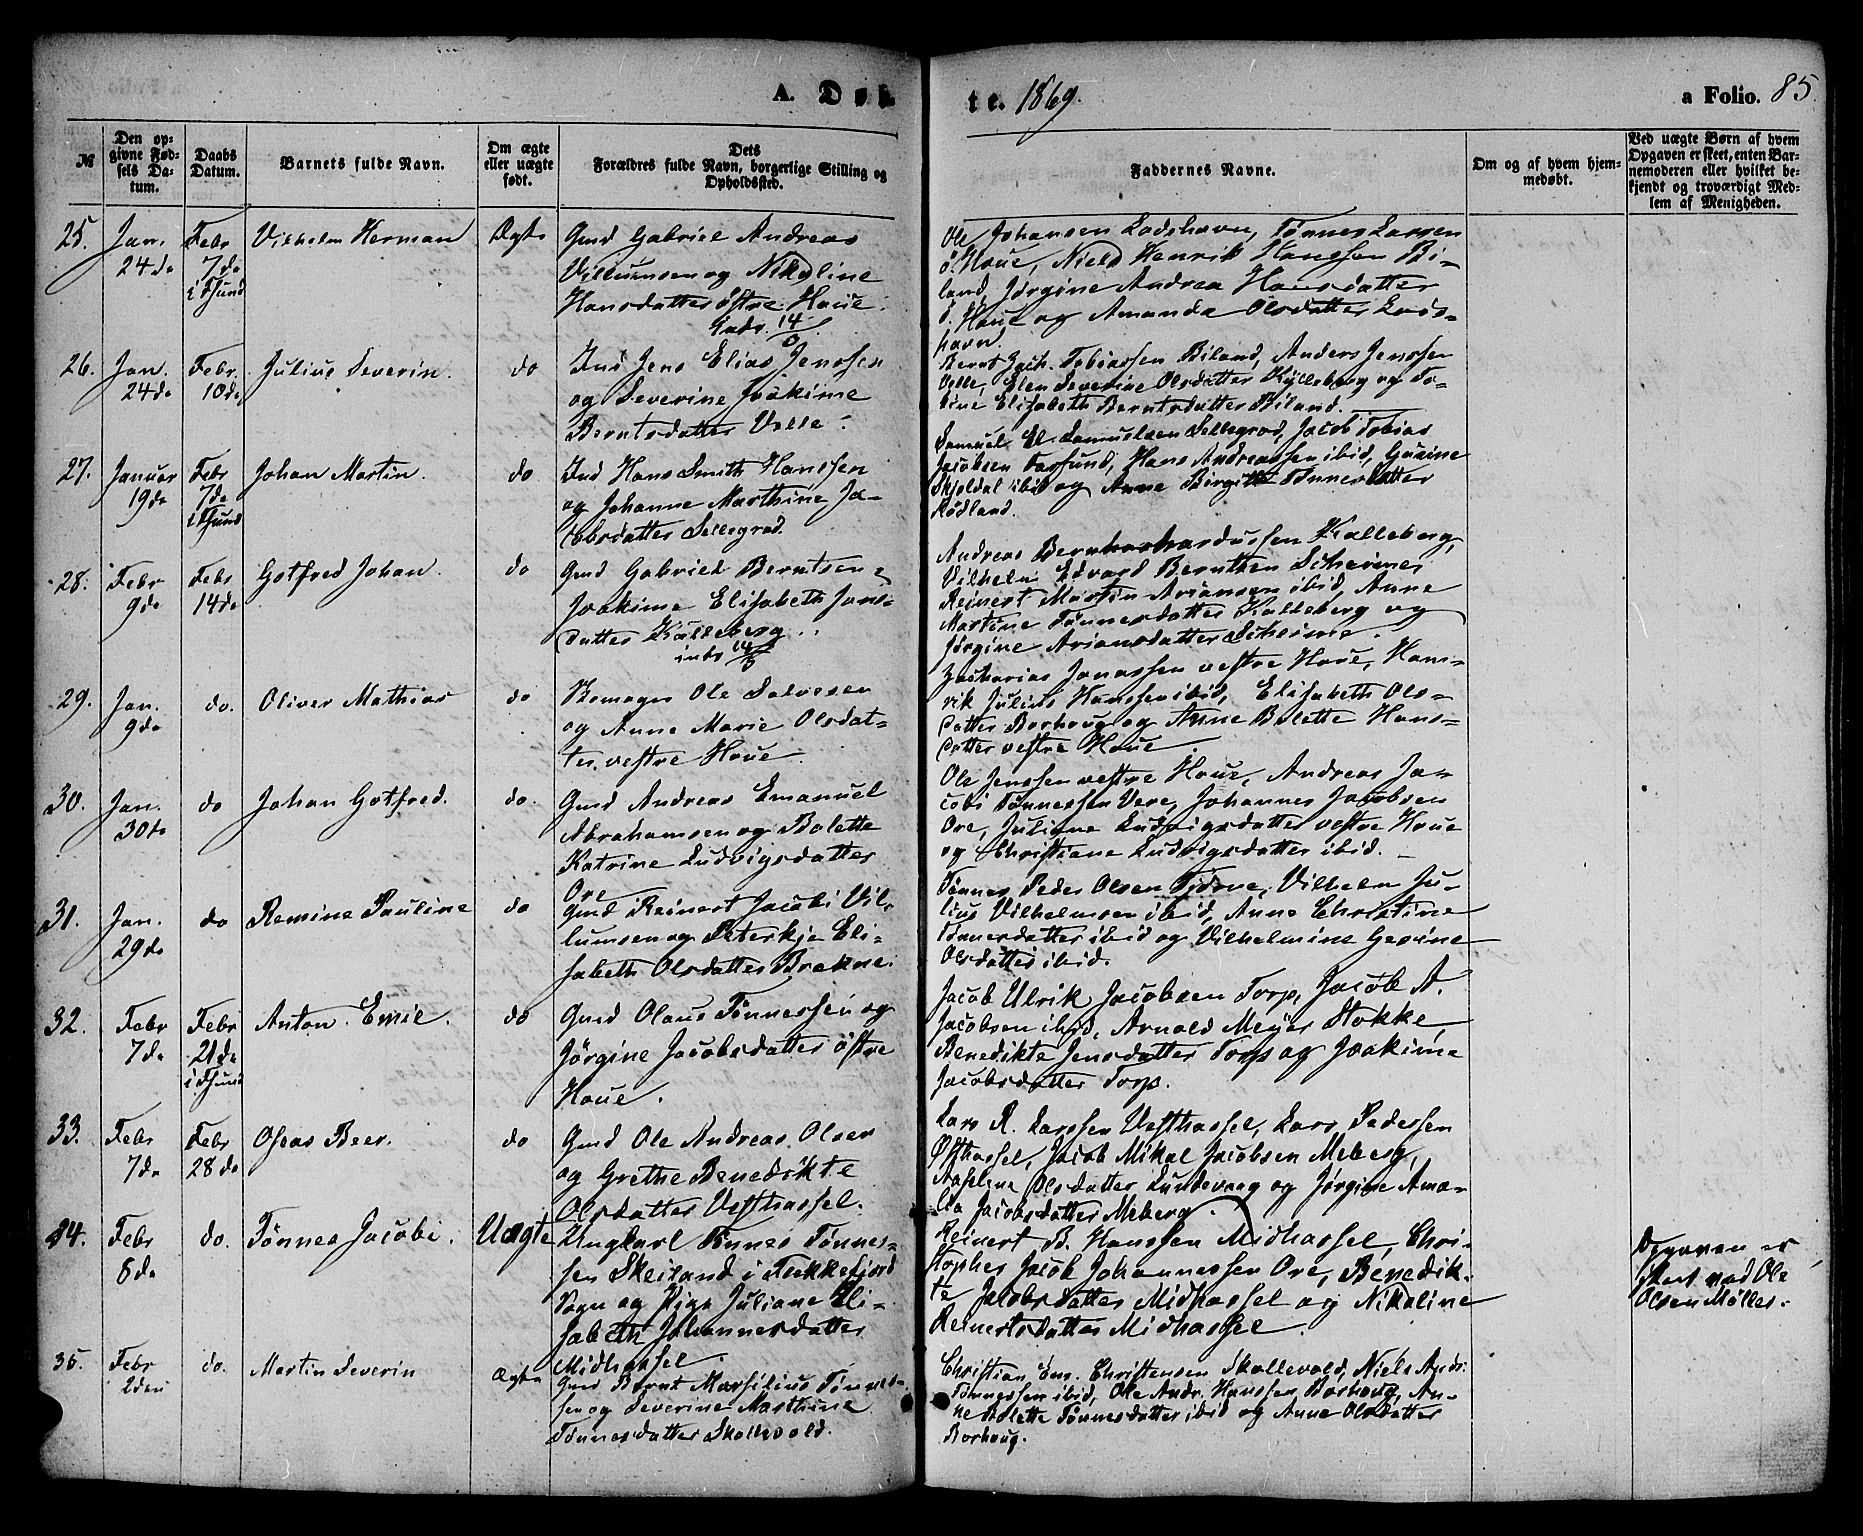 A. Døb
te. 1869.
a Folio. 85.
№
Den opgivne Fødsels Datum.
Daabs Datum.
Barnets fulde Navn.
Om ægte eller uægte født.
Dets Forældres fulde Navn, borgerlige Stilling og Opholdssted.
Faddernes Navne.
Om og af hvem hjemmedøbt.
Ved uægte Børn af hvem Opgaven er skeet, enten Barnemoderen eller hvilket bekjendt og troværdigt Medlem af Menigheden.
25. Jan. 24de Febr 7de i Fsund Vilhelm Herman Ægte
Gmd Gabriel Andreas
Villumsen og Nikoline
Hansdatter østre Houe.
Ole Johansen Lodshavn, Tønnes Larsen
ö. Houe, Niels Henrik Hanssen Bi-
land, Jørgine Andrea Hansdatter
ö. Houe og Amanda Olsdatter Lods-
havn.
26. Jan. 24de Febr. 10de Julius Severin. do
Ind Jens Elias Jenssen
og Severine Joakime
Berntsdatter Velle.
Bernt Zach. Tobiassen Biland, Anders Jenssen
Velle, Elen Severine Olsdatter Kylleberg og To-
bine Elisabeth Berntsdatter Biland.
27. Januar 19de Febr 7de i Fsund Johan Martin. do
Ind Hans Smith Hanssen
og Johanne Marthine Ja-
cobsdatter Sellegrod.
Samuel El. Samuelsen Sellegrod, Jacob Tobias
Jacobsen Farsund, Hans Andreassen ibid,
Skjoldal ibid og Anne Birgitte Tønnesdatter
Rødland.
28. Febr 9de Febr 14de Gotfred Johan. do
Gmd Gabriel Berntsen
Joakime Elisabeth Jans-
datter Kalleberg.
Andreas Kalleberg,
Vilhelm Edvard Berntsen Scheime,
Reinert Martin Ariansen ibid, Anne
Martine Tønnesdatter Kalleberg og
Jørgine Ariansdatter Scheime.
29. Jan. 9de do. Oliver Mathias do
Bemager Ole Salvesen
og Anne Marie Olsdat-
ter vestre Houe.
Zacharias Jonassen vestre Houe, Hen-
rik Julius Hanssen ibid, Elisabeth Ols-
datter Borhoug og Anne Bolette Hans-
datter vestre Houe.
30. Jan. 30te do Johan Gotfred. do.
Gmd Andreas Emanuel
Abrahamsen og Bolette
Katrine Ludvigsdatter
Ore
Ole Jenssen vestre Houe, Andreas Ja-
cobi Tønnessen Vere, Johannes Jacobsen
Ore, Juliane Ludvigsdatter vestre Houe
og Christiane Ludvigsdatter ibid.
31. Jan. 29de do Remine Pauline do
Gmd Reinert Jacobi Vil-
lumsen og Peterkje Eli-
sabeth Olsdatter Brekne.
Tønnes Peder Olsen Tjørve, Vilhelm Ju-
lius Vilhelmsen ibid, Anne Christine
Tønnesdatter ibid og Vilhelmine Gesine
Olsdatter ibid.
32. Febr 7de Febr 21de i Fsund Anton Emil. do
Gmd Olaus Tønnessen og
Jørgine Jacobsdatter østre
Houe.
Jacob Ulrik Jacobsen Torp, Jacob A.
Jacobsen ibid, Arnold Meyer Stokke,
Benedikte Jensdatter Torp og Joakime
Jacobsdatter Torp.
33. Febr 7de Febr 28de Oseas Beer. do
Gmd Ole Andreas Olsen
og Grethe Benedikte
Olsdatter Vesthassel.
Lars R. Larssen Vesthassel, Lars Pederssen
Østhassel, Jacob Mikal Jacobsen Meberg,
Aaselene Olsdatter Lundevaag og Jørgine Ama-
lia Jacobsdatter Meberg.
34. Febr 8de do. Tønnes Jacobi. Uægte
Ungkarl Tønnes Tønnes-
sen Skeiland i Flekkefjord
Sogn og Pige Juliane Eli-
sabeth Johannesdatter
Midhassel.
Reinert B. Hanssen Midhassel, Chri-
stopher Jacob Johannessen Ore, Benedik-
te Jacobsdatter Midhassel og Nikoline
Reinertsdatter Midhassel.
Opgaven er
skeet ved Ole
Olsen Møller.
35. Febr 2den do. Martin Severin Ægte
Gmd Bernt Marsilius Tønnes-
sen og Severine Marthine
Tønnesdatter Skollevold.
Christian Em. Christensen Skollevold, Niels Andr.
Tønnessen ibid, Ole Andr. Hanssen Borhoug, An-
ne Bolette Tønnesdatter ibid og Anne Olsdatter
Borhoug.